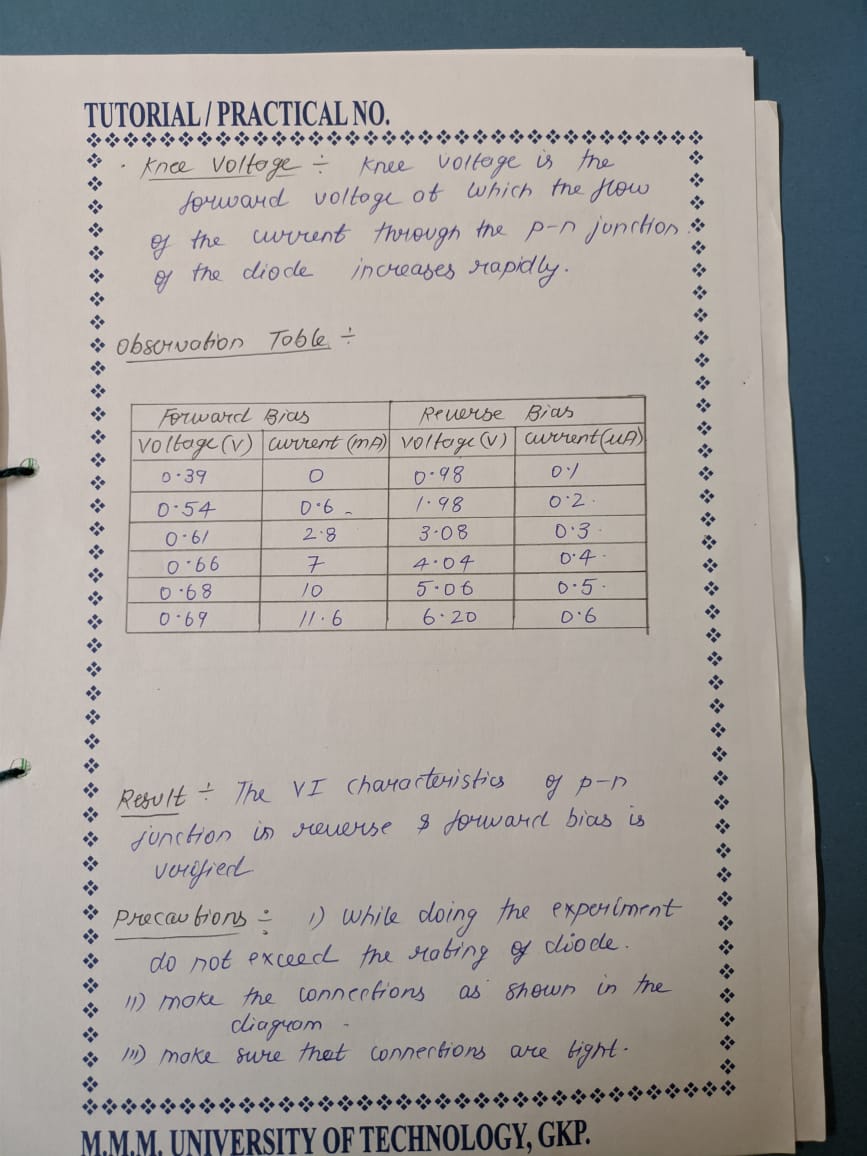 TUTORIAL / PRACTICAL NO.
· Knee Voltage ÷ Knee voltage is the
forward voltage at which the flow
of the current through the p-n junction
of the diode increases rapidly.
Observation Table ÷
Forward Bias Reverse Bias
Voltage (V) current (mA) voltage (V) current (uA)
0.39 0 0.98 0.1
0.54 0.6 1.98 0.2
0.61 2.8 3.08 0.3
0.66 7 4.04 0.4
0.68 10 5.06 0.5
0.69 11.6 6.20 0.6
Result ÷ The VI characteristics of p-n
junction in reverse & forward bias is
verified.
Precautions ÷ i) While doing the experiment
do not exceed the rating of diode.
ii) make the connections as shown in the
diagram.
iii) make sure that connections are tight.
M.M.M. UNIVERSITY OF TECHNOLOGY, GKP.